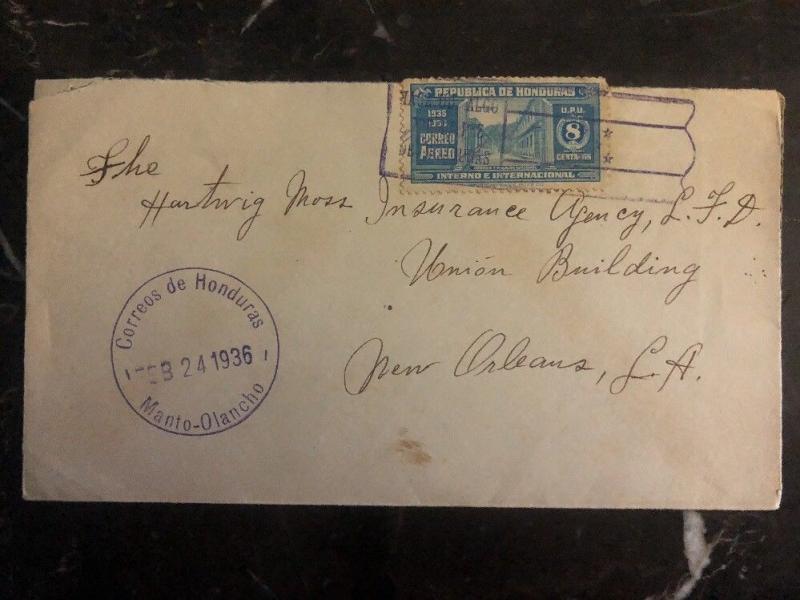 REPUBLICA DE HONDURAS
1935
U.P.U.
CORREO
AEREO
8
INTERNO E INTERNACIONAL
ALGO
The
Hartwig Moss Insurance Agency, L.T.D.
Unión Building
New Orleans, L.A.
Correos de Honduras
FEB 24 1936
Manto-Olancho